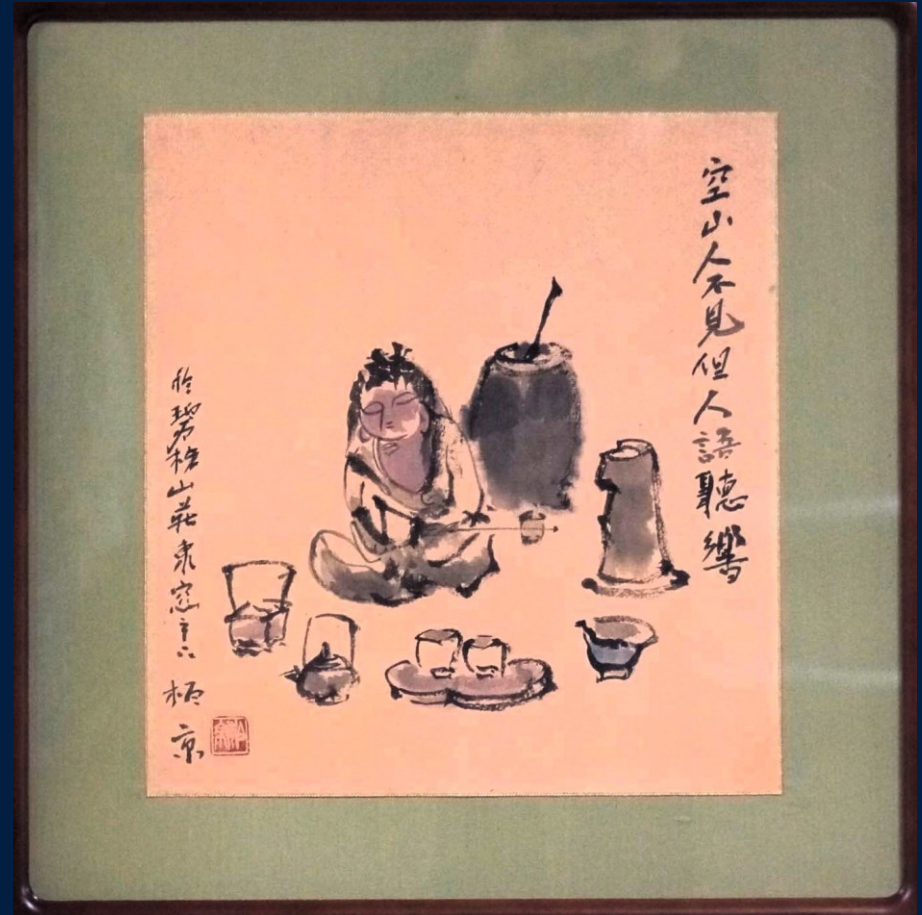 空山人不見但人語聽響
於碧梧山莊
京